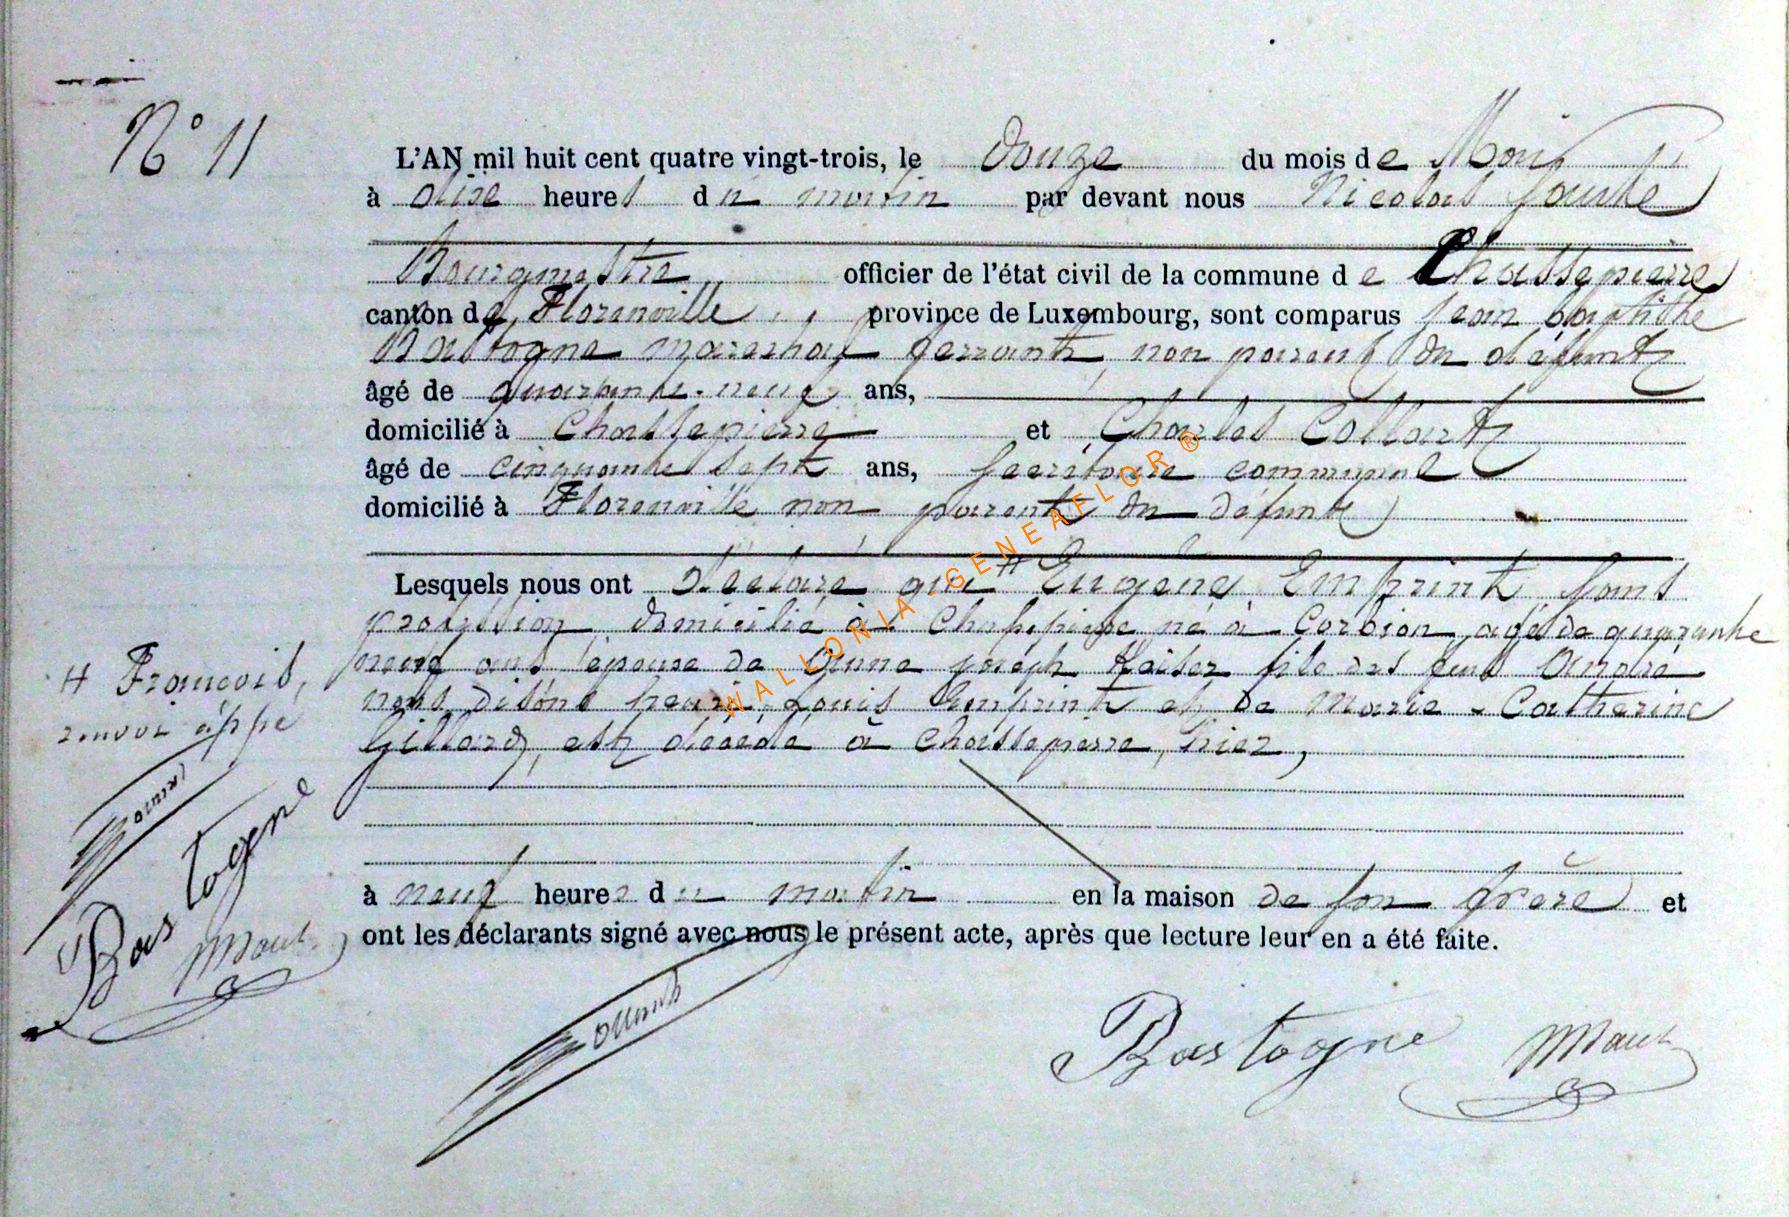 N° 11
L'AN mil huit cent quatre vingt-trois, le douze du mois de Mai
à onze heures du matin par devant nous Nicolas
Bourgmestre officier de l'état civil de la commune de Chassepierre
canton de Florenville, province de Luxembourg, sont comparus Jean Baptiste
Bastogne marechal ferrant, non parent du défunt
âgé de quarante-neuf ans,
domicilié à Chassepierre et Charles Collart
âgé de cinquante sept ans, secrétaire communal
domicilié à Florenville non parent du défunt
Lesquels nous ont déclaré que H Eugène Emprint sans
profession, domicilié à Chassepierre né à Corbion, agé de quarante
neuf ans, epoux de Anne joseph Kaiser fils des feus André
nous disons henri-Louis Emprint et de Marie-Catherine
Gillard, est décédé à Chassepierre, hier,
à neuf heures du matin en la maison de son frère et
ont les déclarants signé avec nous le présent acte, après que lecture leur en a été faite.
H François,
renvoi appé
Bastogne
Bastogne
WALLONIA - GENEAFLOR ®